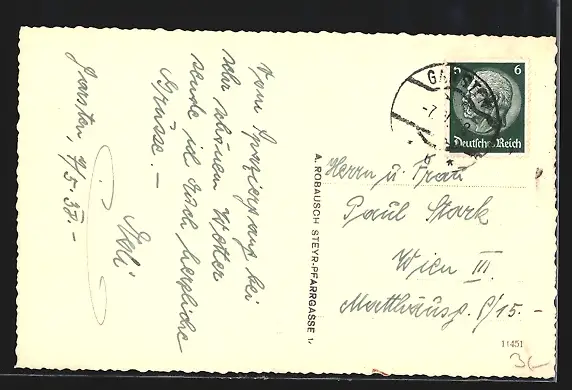 Garsten, 7/5. 38.-
Vom Spaziergang bei
sehr schönem Wetter
sende ich Euch herzliche
Grüsse. -
A. ROBAUSCH STEYR-PFARRGASSE 1.
GARSTEN
6
Deutsches Reich
Herrn u. Frau
Paul Stark
Wien III.
Matthäusg. 8/15. -
11451